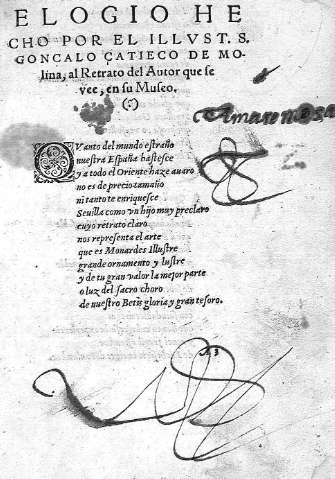 ELOGIO HE
CHO POR EL ILLVST. S.
GONCALO CATIECO DE MO-
lina, al Retrato del Autor que se
vee, en su Museo.
(∴)
QVanto del mundo estraño
nuestra España bastesce
y a todo el Oriente haze auaro
no es de precio tamaño
ni tanto te enriquesce
Seuilla como vn hijo muy preclaro
cuyo retrato claro
nos representa el arte
que es Monardes Illustre
grande ornamento y lustre
y de tu gran valor la mejor parte
o luz del sacro choro
de nuestro Betis gloria y gran tesoro.